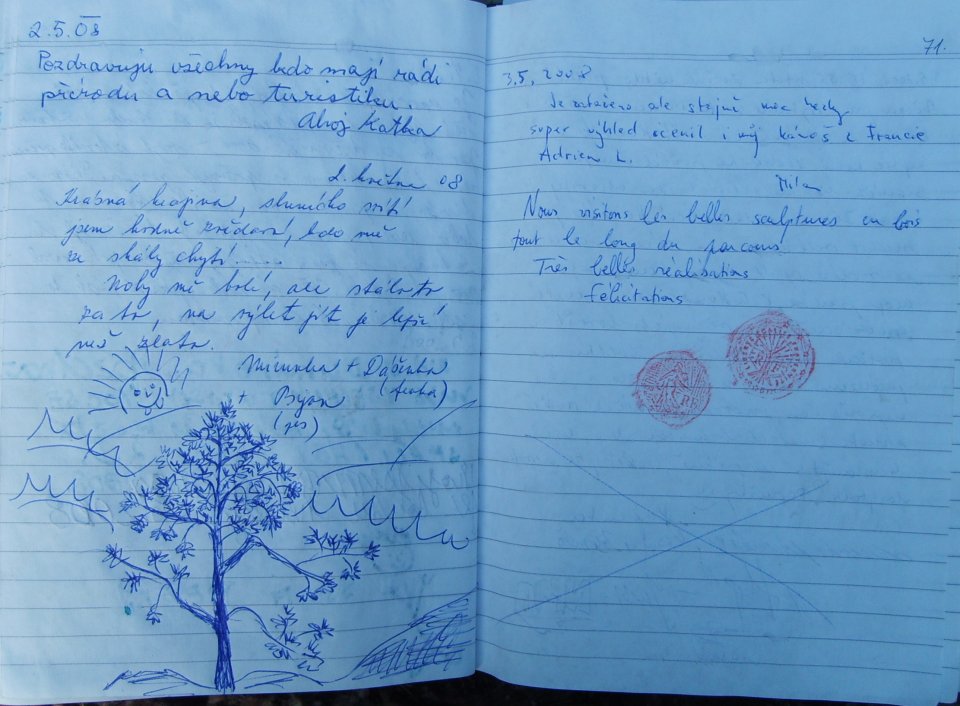 2.5.08
Pozdravuju všechny kdo mají rádi
přírodu a nebo turistiku.
Ahoj Katka
2. května 08
Krásná krajina, sluníčko svítí
jsem hodně zvědavá, kdo mě
ze skály chytí!......
Nohy mě bolí, ale stálo to
za to, na výlet jít je lepší
než zlato.
+ Dášenka
+ Bryan (fenka)
(pes)
71.
3.5, 2008
Je zataženo ale stejně moc hezky
super výhled ocenil i můj z Francie
Adrien L.
Milan
Nous visitons les belles sculptures en bois
tout le long du parcours
Très belles réalisations
félicitations